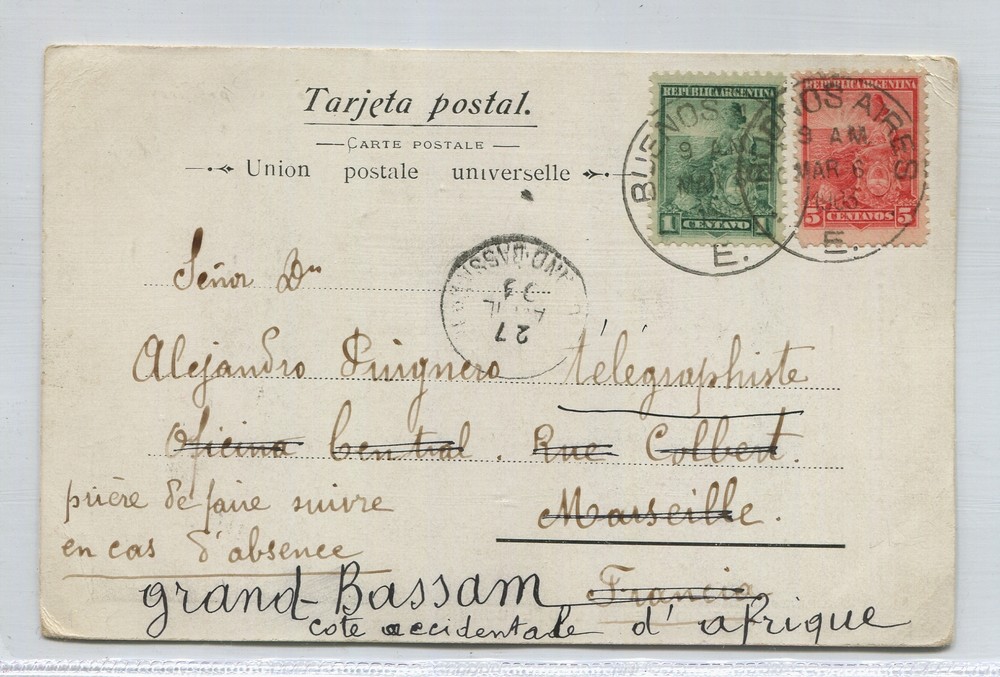 Tarjeta postal.
CARTE POSTALE
Union postale universelle
REPUBLICA ARGENTINA
1 CENTAVO 1
REPUBLICA ARGENTINA
5 CENTAVOS 5
BUENOS
9 AM
E.
BUENOS AIRES
9 AM.
MAR 6
E.
27
Señor Dn
Alejandro Puignero télégraphiste
Oficina Central. Rue Colbert.
Marseille.
prière de faire suivre
en cas d'absence
Francia
grand-Bassam
cote occidentale d'afrique